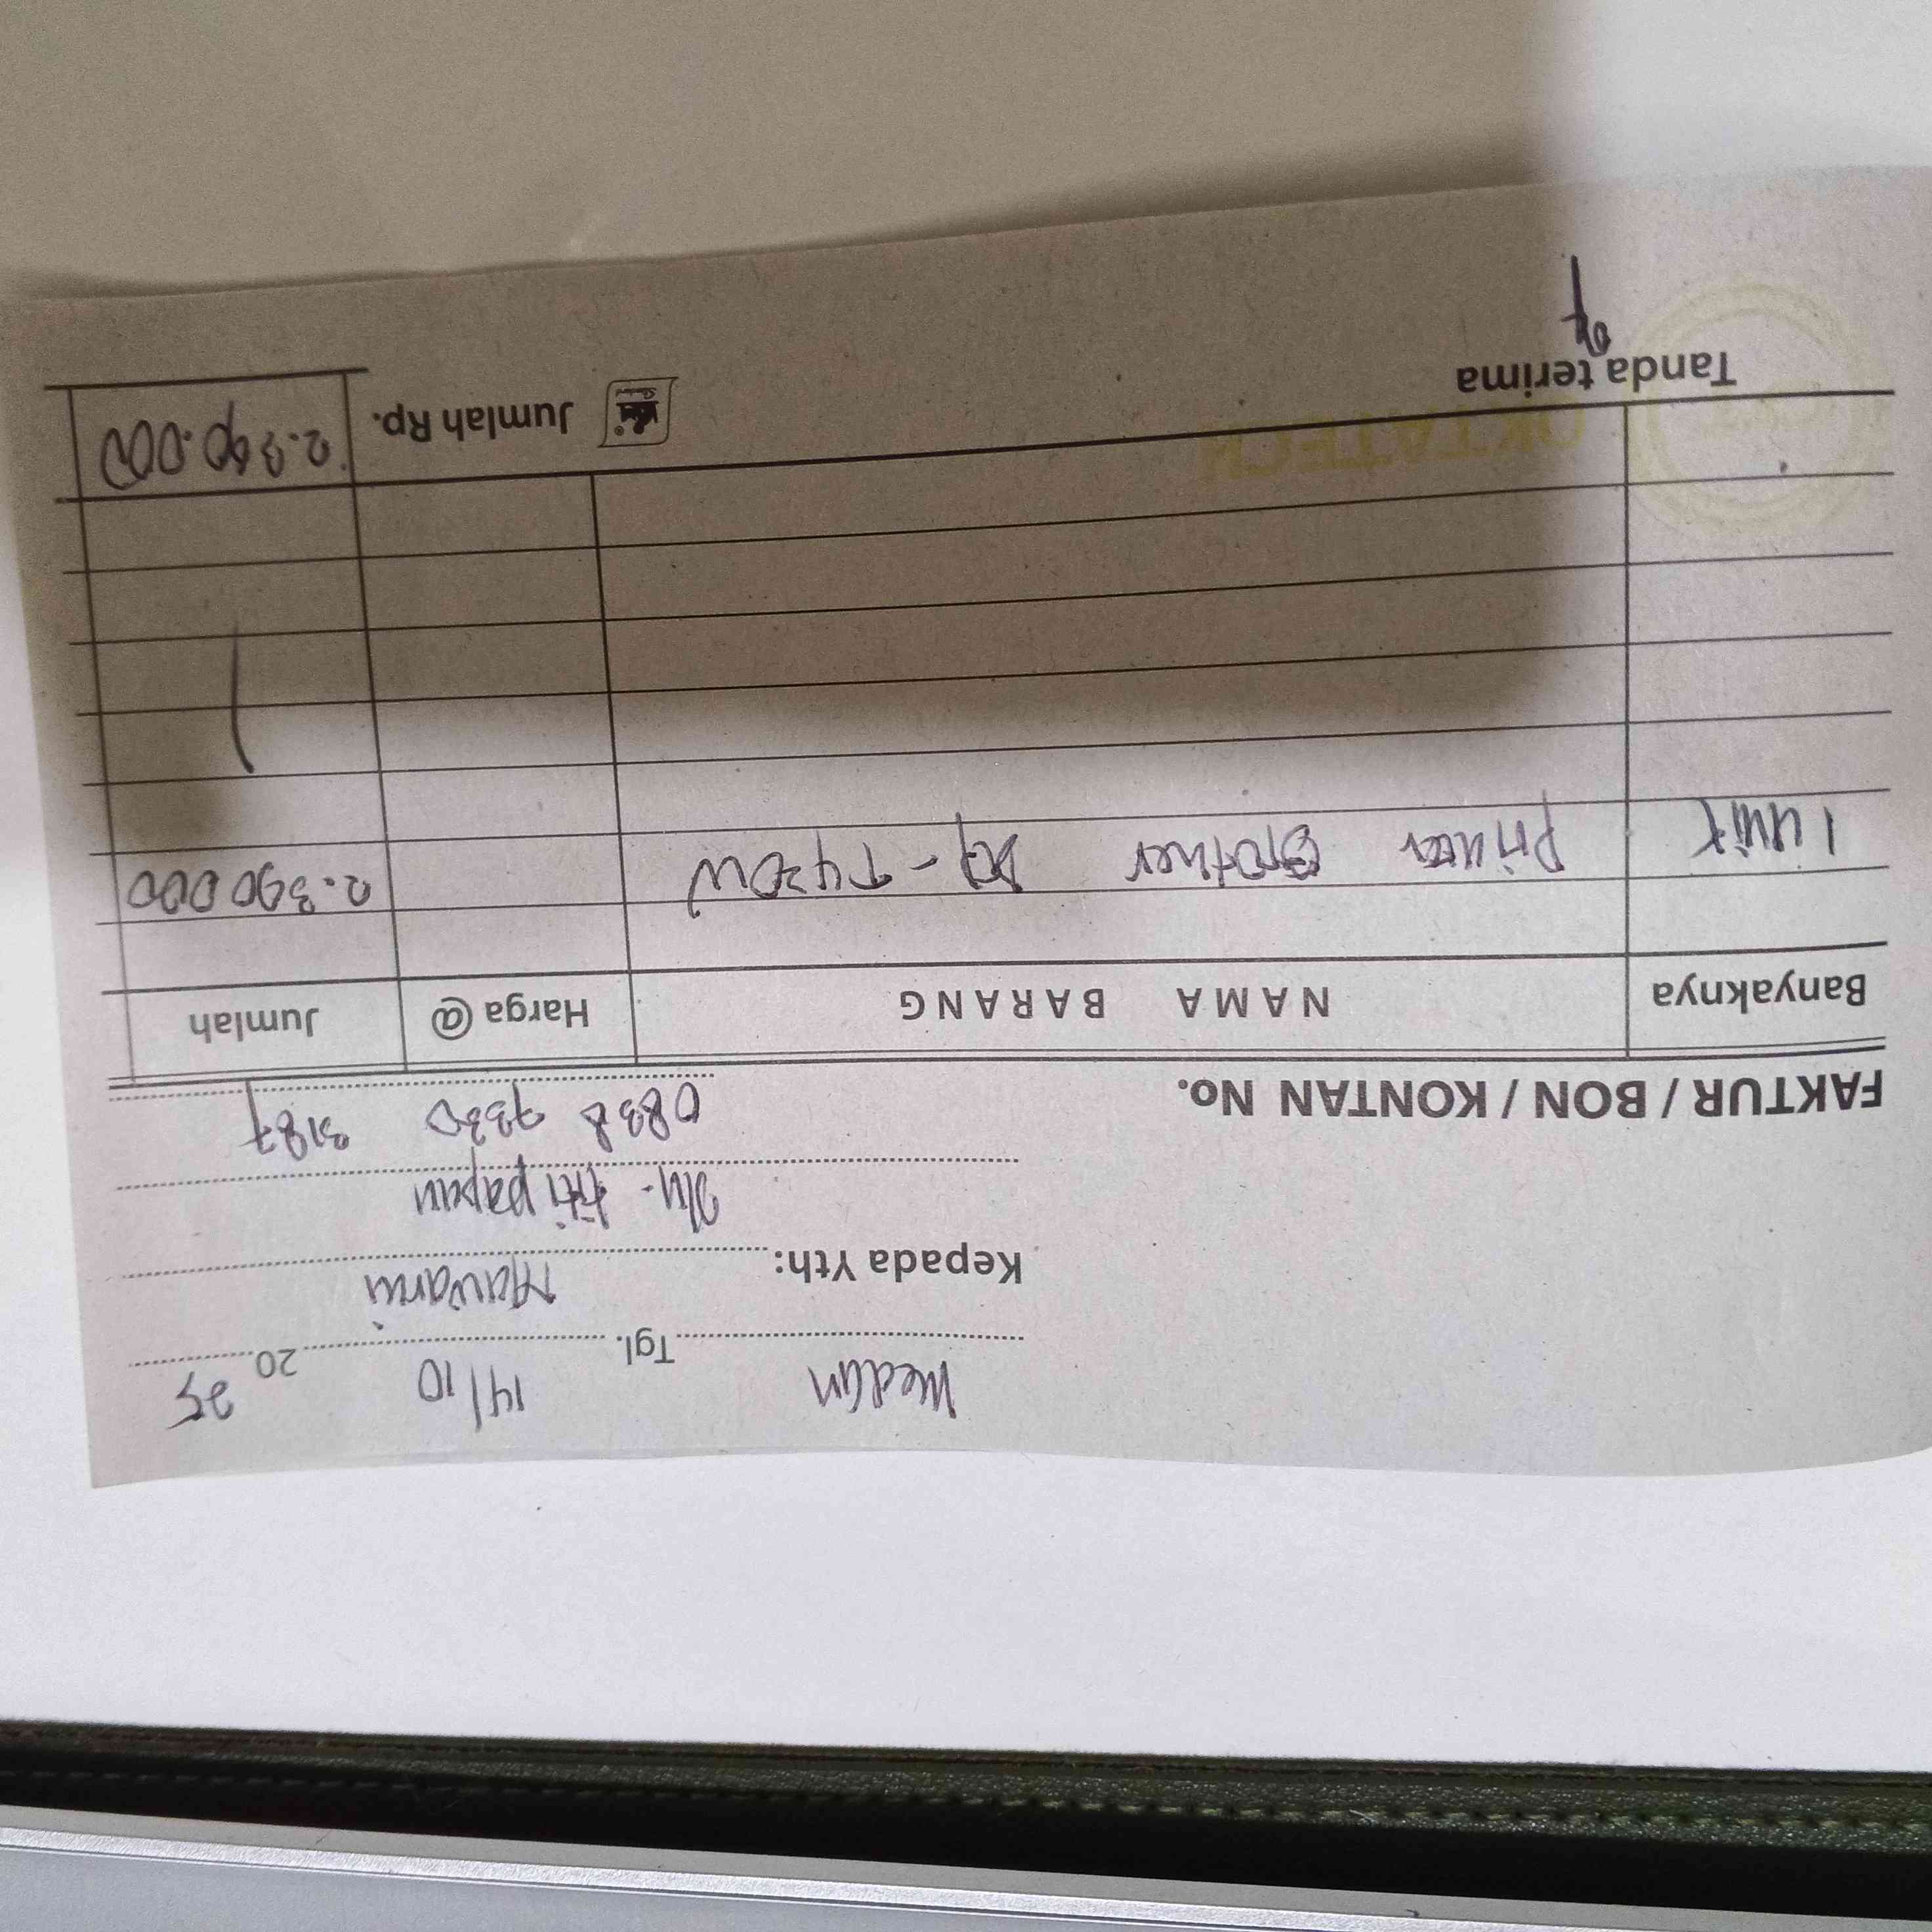 Medan Tgl. 14/10 20 25
Mawarni
Kepada Yth:
titi papan
0838 9330 3187
FAKTUR / BON / KONTAN No.
Banyaknya NAMA BARANG Harga @ Jumlah
1 unit Printer Brother T420W 2.390.000
OKTATECH
Tanda terima Jumlah Rp. 2.390.000